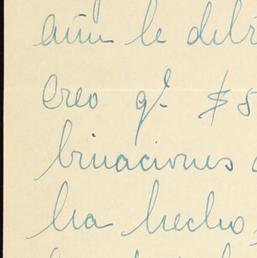 aún le deb
Creo qᵉ $ 8
binaciones
ha hecho,